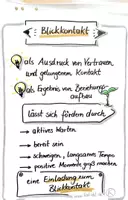 Blickkontakt
als Ausdruck von Vertrauen
und gelungenem Kontakt
als Ergebnis von Beziehungs-
aufbau
lässt sich fördern durch
→ aktives Warten
→ bereit sein
→ schweigen, langsames Tempo
→ positive Momente groß machen
eine Einladung zum
Blickkontakt